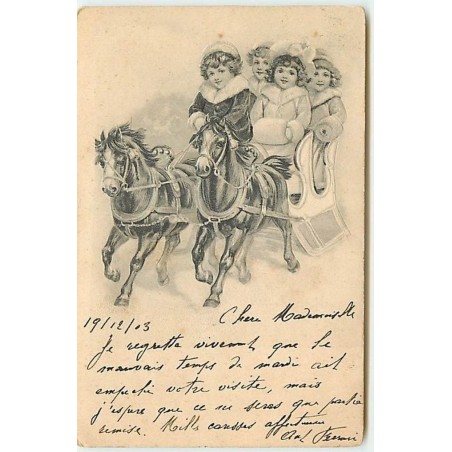 19/12/03
Chère Mademoiselle
Je regrette vivement que le
mauvais temps de mardi ait
empêché votre visite, mais
j'espère que ce ne sera que partie
remise. Mille